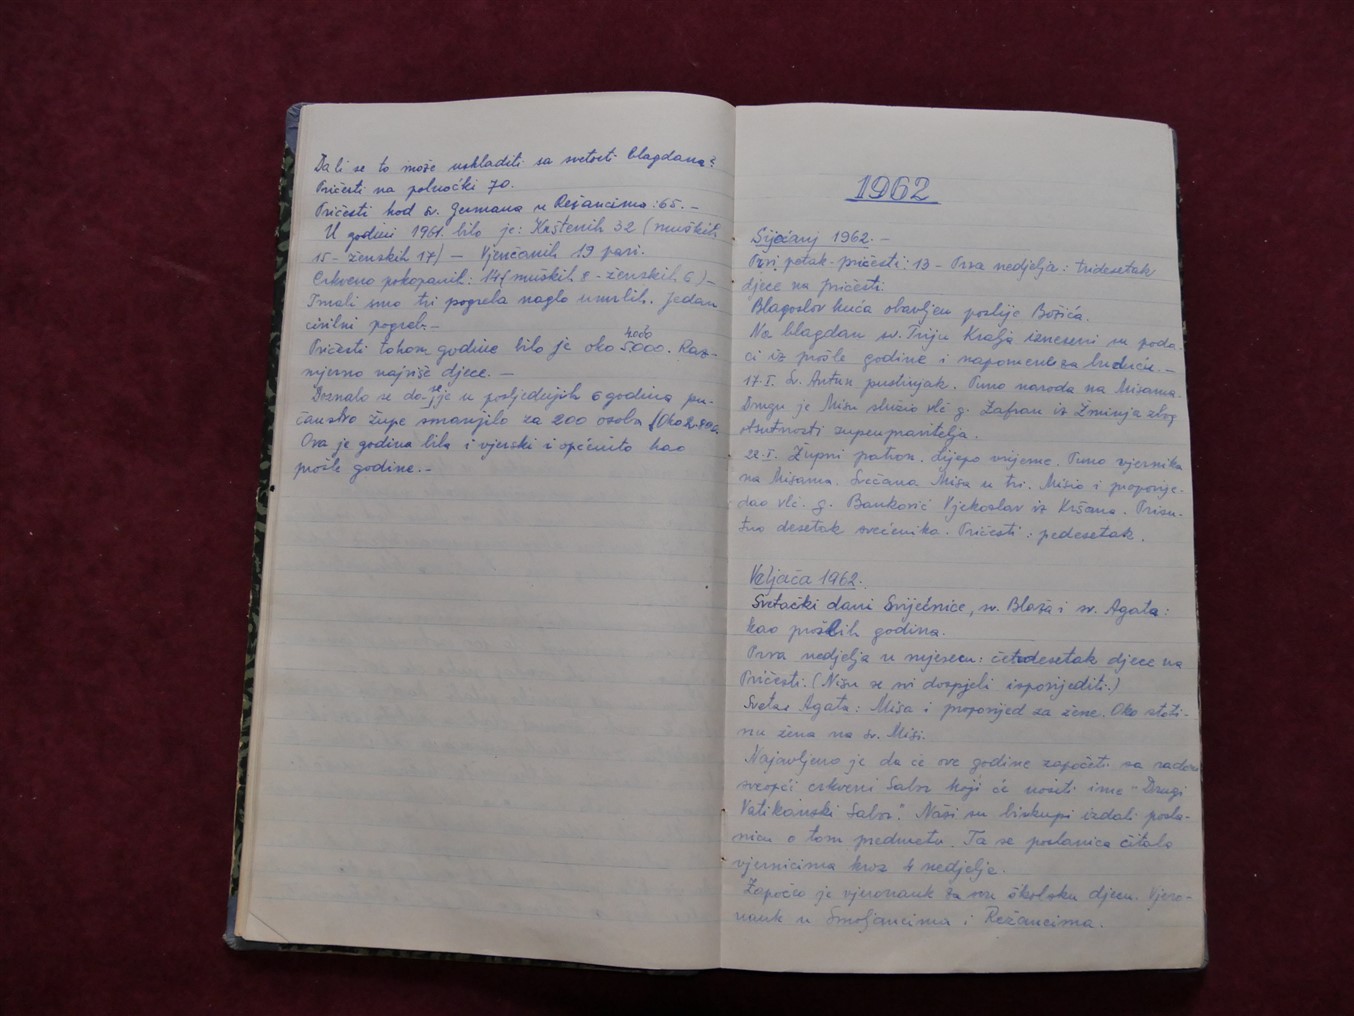 Da li se to može uskladiti sa svetosti blagdana?
Pričesti na polnoćki 70.
Pričesti kod sv. Germana u Režancima: 65. -
U godini 1961. bilo je: Krštenih 32 (muških
15 - ženskih 17) - Vjenčanih 19 pari.
Crkveno pokopanih: 14 (muških 8 - ženskih 6) -
Imali smo tri pogreba naglo umrlih. Jedan
civilni pogreb. -
Pričesti tokom godine bilo je oko 5000. Raz-
4000
mjerno najviše djece. -
Doznalo se da se je u posljednjih 6 godina pu-
čanstvo župe smanjilo za 200 osoba
Ova je godina bila i vjerski i općenito kao
prošle godine. -
1962
Siječanj 1962. -
Prvi petak - pričesti: 13 - Prva nedjelja: tridesetak
djece na pričesti.
Blagoslov kuća obavljen poslije Božića.
Na blagdan sv. Triju Kralja izneseni su poda-
ci iz prošle godine i napomene za buduću. -
17. I. Sv. Antun pustinjak. Puno naroda na Misama.
Drugu je Misu služio vlč. g. Zafran iz Žminja zbog
otsutnosti župeupravitelja.
22. I. Župni patron. Lijepo vrijeme. Puno vjernika
na Misama. Svečana Misa u tri. Misio i propovije-
dao vlč. g. Banković Vjekoslav iz Kršana. Prisu-
tno desetak svećenika. Pričesti: pedesetak.
Veljača 1962.
Svetački dani Svijećnice, sv. Blaža i sv. Agata:
kao prošlih godina.
Prva nedjelja u mjesecu: četrdesetak djece na
Pričesti. (Nisu se svi dospjeli ispovijediti.)
Sveta Agata: Misa i propovijed za žene. Oko stoti-
nu žena na sv. Misi.
Najavljeno je da će ove godine započeti sa radom
sveopći crkveni Sabor koji će nositi ime "Drugi
Vatikanski Sabor". Naši su biskupi izdali posla-
nicu o tom predmetu. Ta se poslanica čitala
vjernicima kroz 4 nedjelje.
Započeo je vjeronauk za svu školsku djecu. Vjero-
nauk u Smoljancima i Režancima.